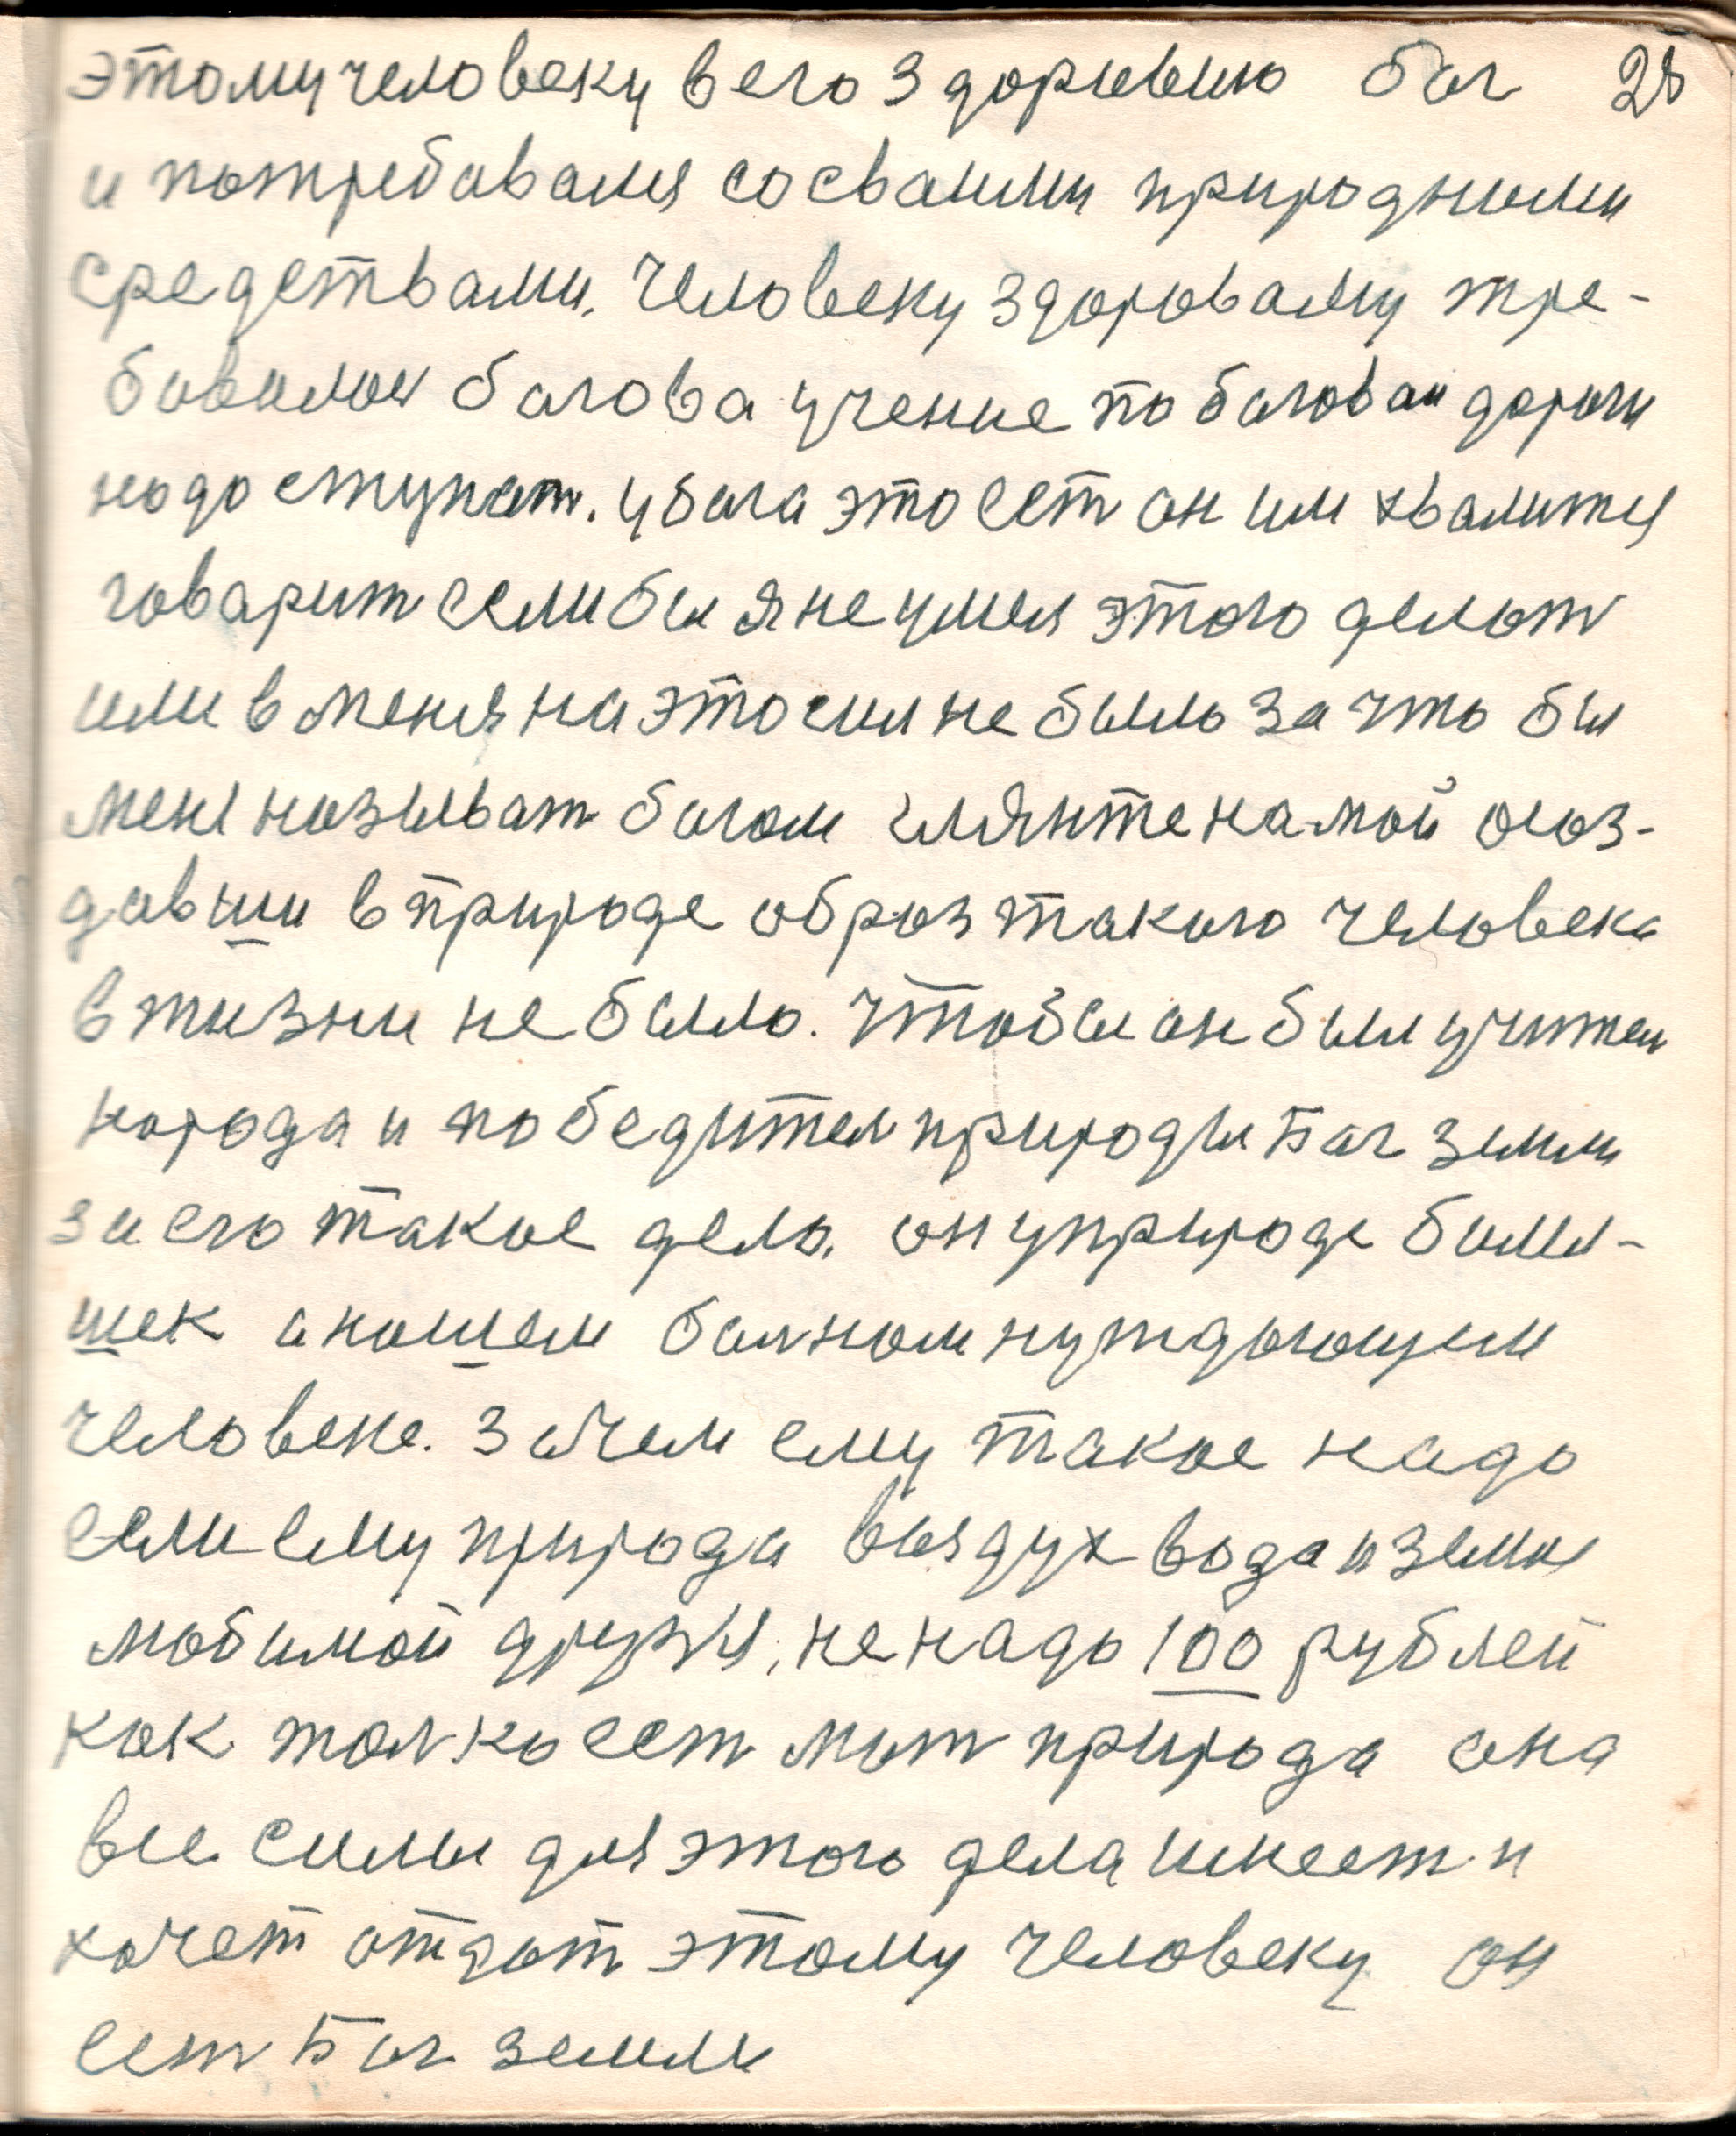 этому человеку в его здоровию бог 28
и потребавался со сваими природными
средствами. Человеку здороваму тре-
бавалос багова учение по баговаи дороги
надо ступат. у бога это ест он им хвалится
говарит если бы я не умел этого делат
или в меня на это сил не было за что бы
меня называт богом гляньте на мой огоз-
давши в природе образ такого человека
в жизни не было. чтобы он был учител
народа и победител природы Бог земли
за его такое дело. он у природе болел-
щек а нашем болном нуждающем
человеке. Зачем ему такое надо
если ему природа воздух вода и земля
любимой друзья, не надо 100 рублей
как толко ест мат природа она
все силы для этого дела имеет и
хочет отдат этому человеку он
ест Бог земли